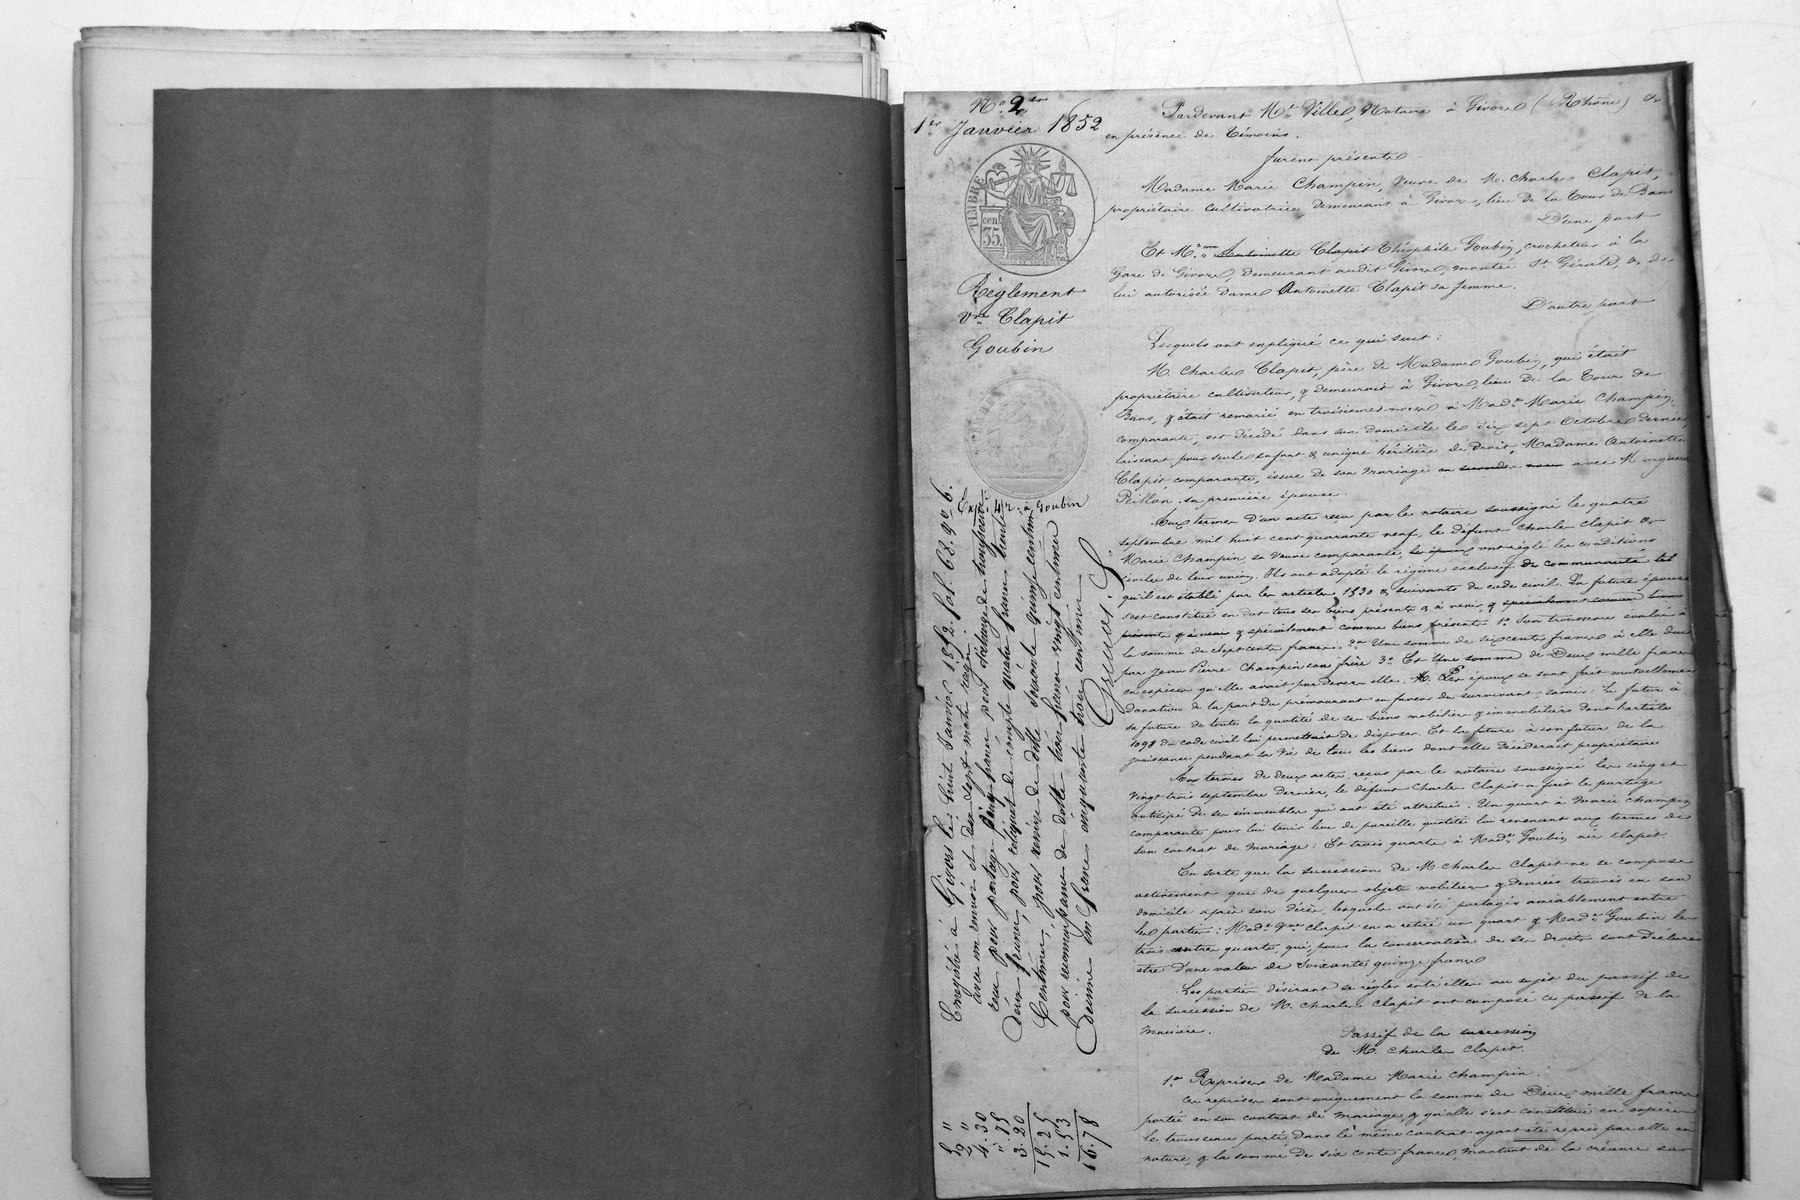 N° 2
1er Janvier 1852
TIMBRE
cen.
35.
Règlement
Vve Clapit
Goubin
Expé. à Goubin
Enregistré à Givors le huit Janvier 1852. fol. 68. v° c 6.
avec un renvoi et dix sept mots rayés.
reçu pour partage deux francs pour
Deux francs, pour reliquat de compte quatre francs trente
Centimes, pour remise de dette soixante quinze centimes
pour reconnaissance de dette trois francs vingt centimes
décime un franc cinquante trois centimes
5 "
2 "
4.30
" 75
3.20
15.25
1.53
16.78
Pardevant Me Ville, Notaire à Givors (Rhône) &
en présence de témoins.
furent présents
Madame Marie Champin, Veuve de M. Charles Clapit,
propriétaire cultivatrice demeurant à Givors, lieu de la Tour de Bans
D'une part
Et M. Antoinette Clapit Théophile Goubin, crocheteur à la
Gare de Givors, demeurant audit Givors, montée St Gérald, & de
lui autorisée dame Antoinette Clapit sa femme.
D'autre part
Lesquels ont expliqué ce qui suit :
M. Charles Clapit, père de Madame Goubin, qui était
propriétaire cultivateur, & demeurait à Givors, lieu de la Tour de
Bans, & était remarié en troisièmes noces à Made Marie Champin,
comparante, est décédé dans son domicile le dix sept Octobre dernier,
laissant pour seule enfant & unique héritière de droit, Madame Antoinette
Clapit, comparante, issue de son mariage en secondes noces avec Marguerite
Peillon sa première épouse.
Aux termes d'un acte reçu par le notaire soussigné le quatre
septembre mil huit cent quarante neuf, le défunt Charles Clapit &
Marie Champin, sa veuve comparante, les époux ont réglé les conditions
civiles de leur union. Ils ont adopté le régime exclusif de communauté tel
qu'il est établi par les articles 1530 & suivants du code civil. La future épouse
s'est constitué en dot tous ses biens présents & à venir, & spécialement comme biens
présents & à venir & spécialement comme biens présents 1° Son trousseau évalué à
la somme de cent francs. 2° Une somme de six cents francs à elle due
par Jean Pierre Champin son frère 3° Et Une somme de Deux mille francs
en espèces qu'elle avait par devers elle. Les époux se sont fait mutuellement
donation de la part du prémourant en faveur du survivant, savoir : le futur à
sa future de toute la quotité de ses biens mobiliers & immobiliers dont l'article
1098 du code civil lui permettait de disposer. Et la future à son futur de la
jouissance pendant sa vie de tous les biens dont elle décéderait propriétaire
Aux termes de deux actes, reçus par le notaire soussigné les cinq et
vingt trois septembre dernier, le défunt Charles Clapit a fait le partage
anticipé de ses immeubles qui ont été attribués : Un quart à Marie Champin
comparante pour lui tenir lieu de pareille quotité lui revenant aux termes de
son contrat de mariage : Et trois quarts à Made Goubin née Clapit
En sorte que la succession de M. Charles Clapit ne se compose
activement que de quelques objets mobiliers & denrées trouvés en son
domicile après son décès, lesquels ont été partagés amiablement entre
les parties : Made Vve Clapit en a retiré un quart & Made Goubin les
trois autres quarts, qui, pour la conservation de ses droits sont déclarés
être d'une valeur de soixante quinze francs
Les parties désirant se régler entr'elles au sujet du passif de
la succession de M. Charles Clapit ont composé ce passif de la
manière.
Passif de la succession
de M. Charles Clapit.
1° Reprises de Madame Marie Champin.
Ces reprises sont uniquement la somme de Deux mille francs
portée en son contrat de mariage, & qu'elle s'est constituée en espèces
le trousseau porté dans le même contrat ayant été repris par elle en
nature, & la somme de six cents francs, montant de la créance sur